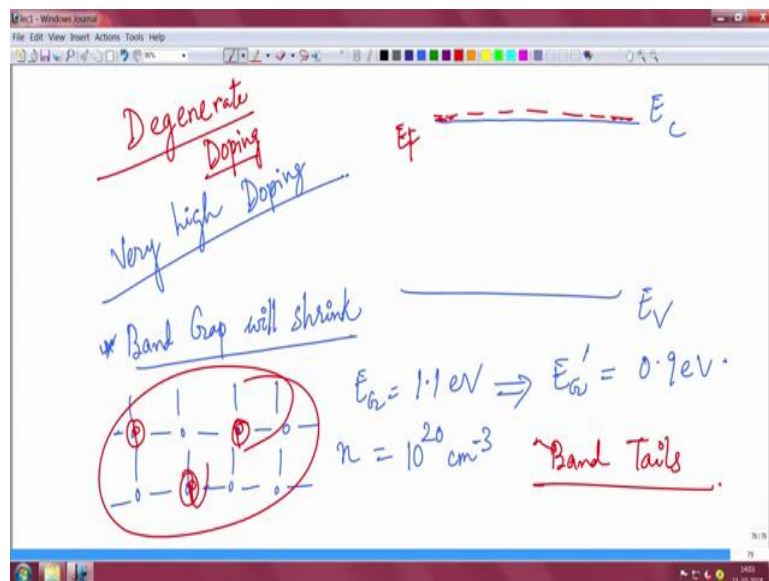 lec1 - Windows Journal
File Edit View Insert Actions Tools Help
Degenerate
Doping
Very high Doping
* Band Gap will shrink
E_C
E_F
E_V
E_G = 1.1 eV ⇒ E_G' = 0.9 eV.
n = 10^20 cm^-3
Band Tails
79/79
79
14:03